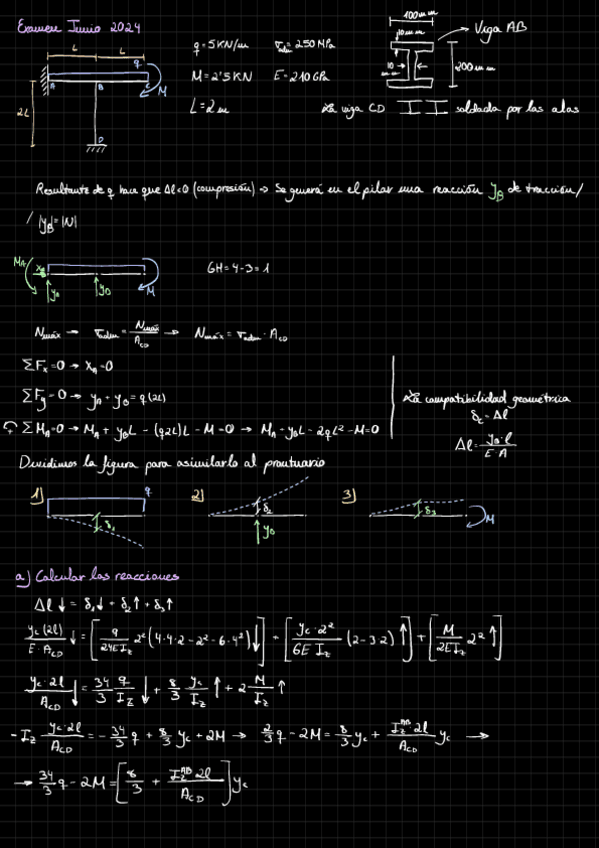 Examen Junio 2024
L L
q
A B C
M
2L
D
q = 5KN/m σadm = 250 MPa
M = 2'5 KN E = 210 GPa
L = 2m
100mm
10mm
10 mm
200mm
Viga AB
La viga CD II soldada por las alas
Resultante de q hace que Δl<0 (compresión) → Se generá en el pilar una reacción yB de tracción/
/ |yB| = |N|
MA xA q
yA yB M
GH = 4-3 = 1
Nmáx → σadm = Nmáx/ACD → Nmáx = σadm · ACD
ΣFx = 0 → xA = 0
ΣFy = 0 → yA + yB = q(2L)
ΣMA = 0 → MA + yBL - (q2L)L - M = 0 → MA + yBL - 2qL² - M = 0
La compatibilidad geométrica
δc = Δl
Δl = yB·l / E·A
Dividimos la figura para asimilarlo al prontuario
1) q δ1 2) δ2 yB 3) δ3 M
a) Calcular las reacciones
Δl↓ = δ1↓ + δ2↑ + δ3↑
yc(2l)/E·ACD ↓ = [q/24EIz 2²(4·4·2-2²-6·4²)↓] + [yc·2²/6EIz (2-3·2)↑] + [M/2EIz 2²↑]
yc·2l/ACD ↓ = 34/3 q/Iz ↓ + 8/3 yc/Iz ↑ + 2 M/Iz ↑
-Iz yc·2l/ACD = -34/3 q + 8/3 yc + 2M → 2/3 q - 2M = 8/3 yc + IzAB·2l/ACD yc →
→ 34/3 q - 2M = [8/3 + IzAB·2l/ACD] yc